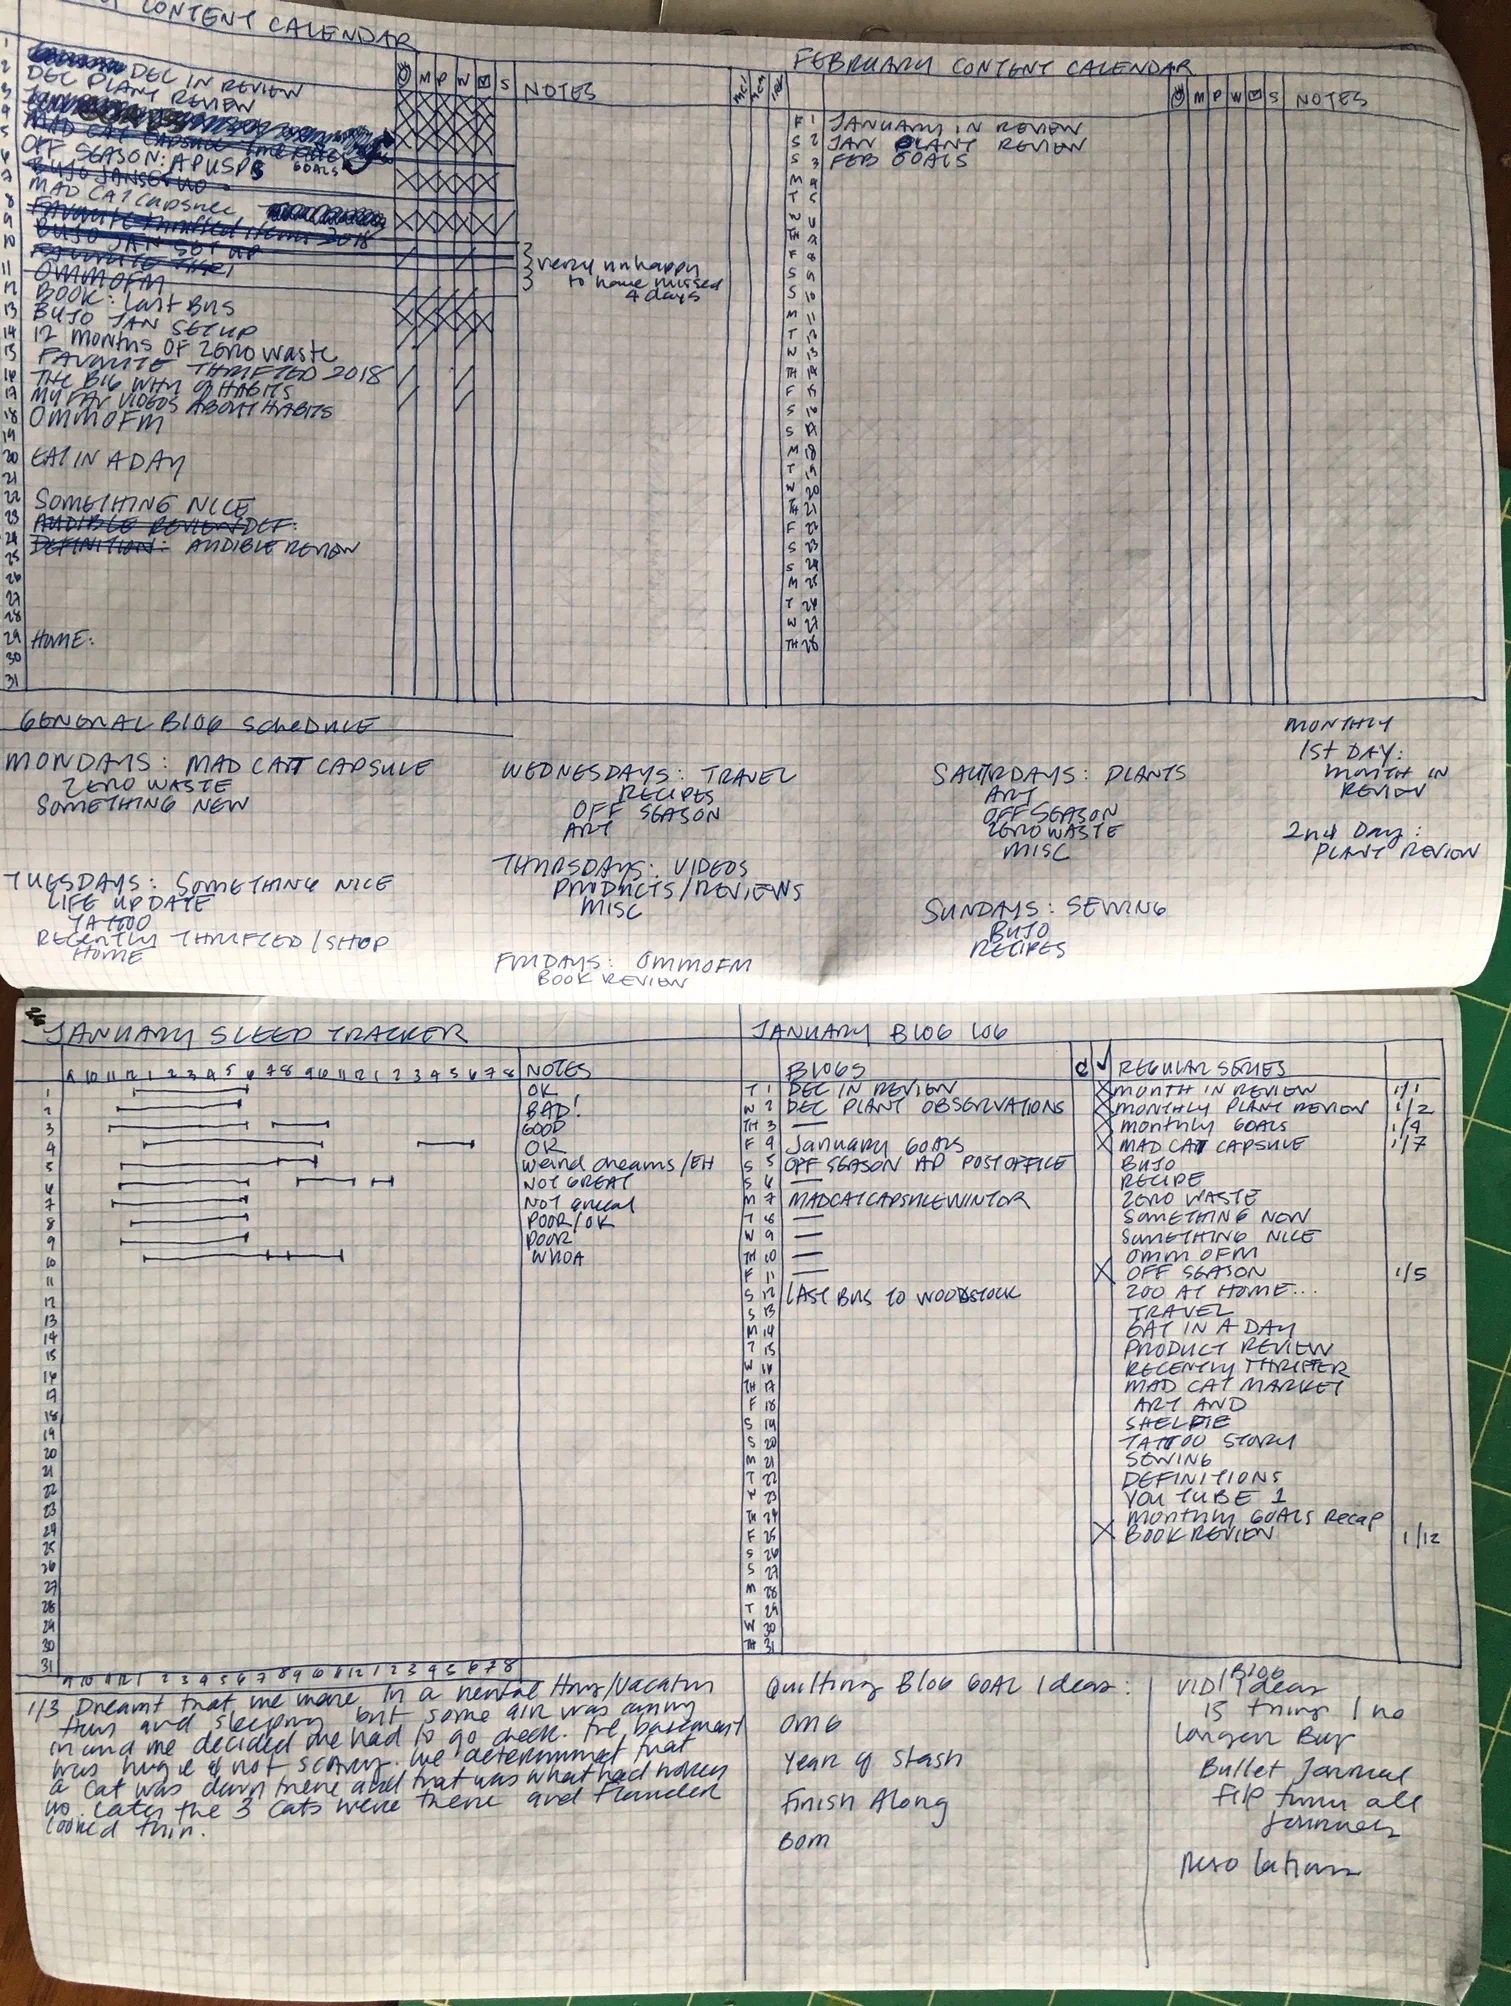 CONTENT CALENDAR
M P W S NOTES
1
2 DEC IN REVIEW
3 DEC PLANT REVIEW
4
5 MAD CAT CAPSULE
6 OFF SEASON: AP USPS GOALS
7 BUJO JAN SET UP
8 MAD CAT Capsule
9 Favorite thrifted items 2018
10 BUJO JAN SET UP
11 OMMOFM
12 BOOK: Last Bus
13 BUJO JAN SETUP
14 12 months OF ZERO waste
15 FAVORITE THRIFTED 2018
16 THE BIG WHY of HABITS
17 MY FAV VIDEOS ABOUT HABITS
18 OMMOFM
19
20 EAT IN A DAY
21
22 SOMETHING NICE
23 AUDIBLE REVIEW DEF:
24 DEFINITION: AUDIBLE REVIEW
25
26
27
28
29 HOME:
30
31
very unhappy
to have missed
4 days
FEBRUARY CONTENT CALENDAR
M P W S NOTES
F 1 JANUARY IN REVIEW
S 2 JAN PLANT REVIEW
S 3 FEB GOALS
M 4
T 5
W 6
TH 7
F 8
S 9
S 10
M 11
T 12
W 13
TH 14
F 15
S 16
S 17
M 18
T 19
W 20
TH 21
F 22
S 23
S 24
M 25
T 26
W 27
TH 28
GENERAL BLOG SCHEDULE
MONDAYS: MAD CAT CAPSULE
ZERO WASTE
SOMETHING NEW
TUESDAYS: SOMETHING NICE
LIFE UPDATE
TATTOO
RECENTLY THRIFTED/SHOP
HOME
WEDNESDAYS: TRAVEL
RECIPES
OFF SEASON
ART
THURSDAYS: VIDEOS
PRODUCTS/REVIEWS
MISC
FRIDAYS: OMMOFM
BOOK REVIEW
SATURDAYS: PLANTS
ART
OFF SEASON
ZERO WASTE
MISC
SUNDAYS: SEWING
BUJO
RECIPES
MONTHLY
1st DAY:
MONTH IN
REVIEW
2nd Day:
PLANT REVIEW
JANUARY SLEEP TRACKER
9 10 11 12 1 2 3 4 5 6 7 8 9 10 11 12 1 2 3 4 5 6 7 8 NOTES
1 OK
2 BAD!
3 GOOD
4 OK
5 weird dreams/EH
6 NOT GREAT
7 NOT great
8 POOR/OK
9 POOR
10 WHOA
11
12
13
14
15
16
17
18
19
20
21
22
23
24
25
26
27
28
29
30
31
9 10 11 12 1 2 3 4 5 6 7 8 9 10 11 12 1 2 3 4 5 6 7 8
1/3 Dreamt that we were in a rental House/Vacation
and sleeping but some air was coming
in and we decided we had to go check. The basement
was huge & not scary. We determined that
a cat was down there and that was what had woken
us. Later the 3 cats were there and Flander
looked thin.
JANUARY BLOG LOG
BLOGS
T 1 DEC IN REVIEW
W 2 DEC PLANT OBSERVATIONS
TH 3 —
F 4 January GOALS
S 5 OFF SEASON AP POST OFFICE
S 6 —
M 7 MAD CAT CAPSULE WINTER
T 8 —
W 9 —
TH 10 —
F 11 —
S 12 LAST BUS TO WOODSTOCK
S 13
M 14
T 15
W 16
TH 17
F 18
S 19
S 20
M 21
T 22
W 23
TH 24
F 25
S 26
S 27
M 28
T 29
W 30
TH 31
C ✓ REGULAR SERIES
X MONTH IN REVIEW 1/1
X MONTHLY PLANT REVIEW 1/2
X MONTHLY GOALS 1/4
X MAD CAT CAPSULE 1/7
BUJO
RECIPE
ZERO WASTE
SOMETHING NEW
SOMETHING NICE
OMMOFM
X OFF SEASON 1/5
ZOO AT HOME...
TRAVEL
EAT IN A DAY
PRODUCT REVIEW
RECENTLY THRIFTED
MAD CAT MARKET
ART AND
SHELFIE
TATTOO STORY
SEWING
DEFINITIONS
YOUTUBE 1
MONTHLY GOALS Recap
X BOOK REVIEW 1/12
Quilting Blog GOAL Ideas:
OMG
Year of Stash
Finish Along
BOM
VID/Blog Ideas
15 things I no
Longer Buy
Bullet Journal
Flip thru all
Journals
Resolutions